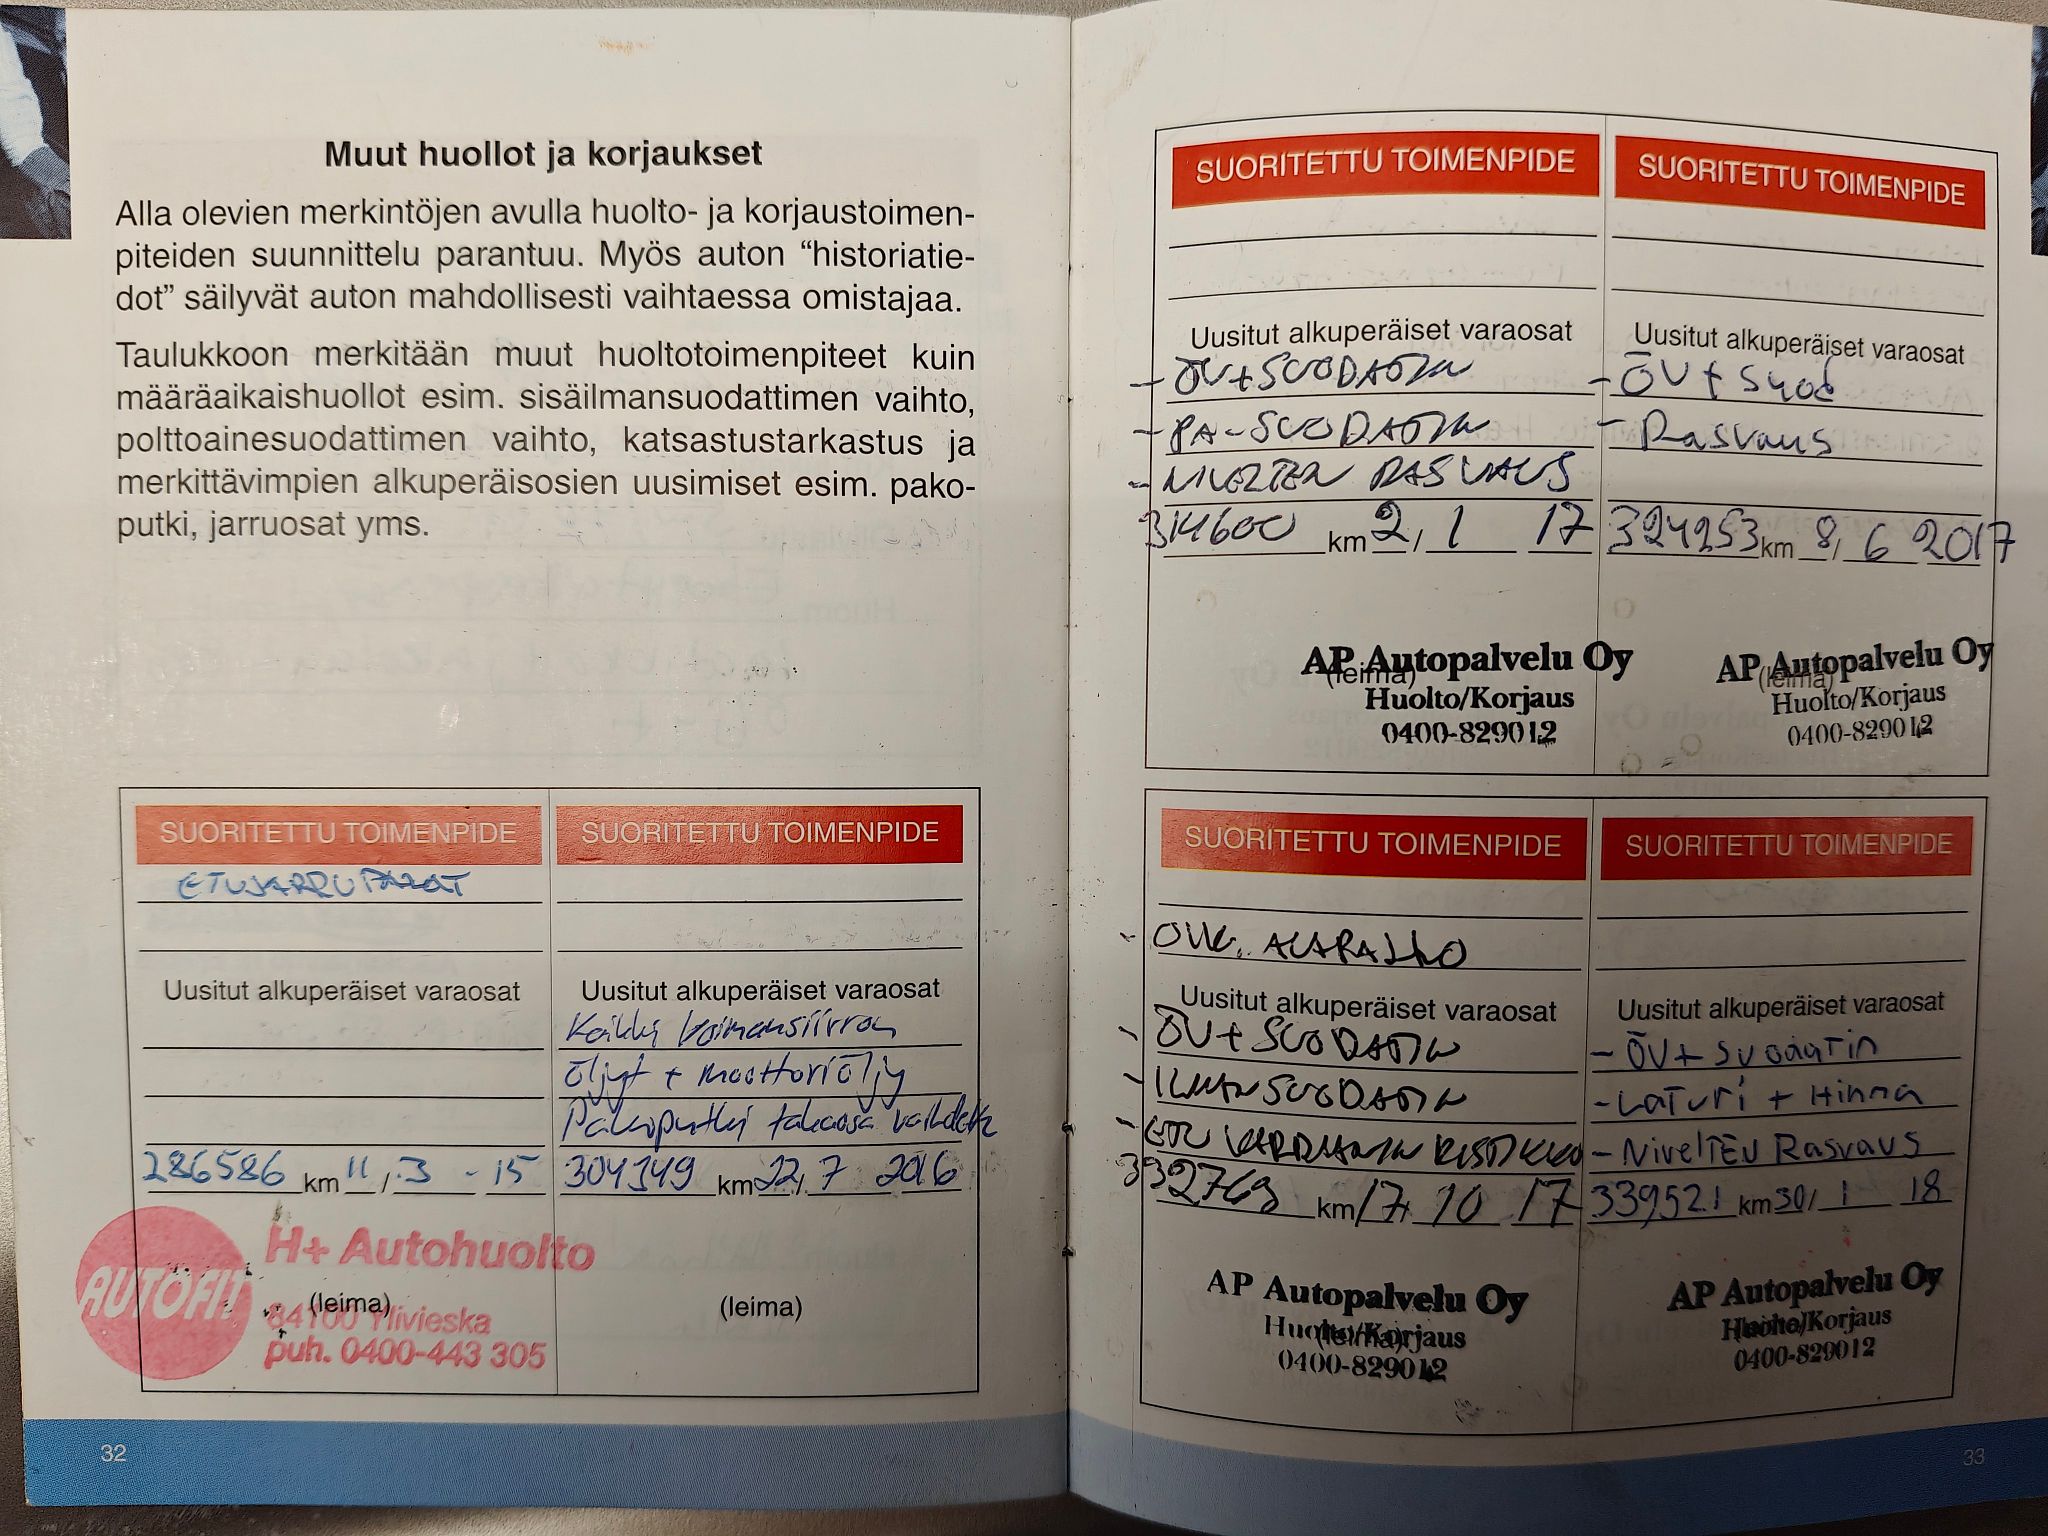 Muut huollot ja korjaukset
Alla olevien merkintöjen avulla huolto- ja korjaustoimen-
piteiden suunnittelu parantuu. Myös auton “historiatie-
dot” säilyvät auton mahdollisesti vaihtaessa omistajaa.
Taulukkoon merkitään muut huoltotoimenpiteet kuin
määräaikaishuollot esim. sisäilmansuodattimen vaihto,
polttoainesuodattimen vaihto, katsastustarkastus ja
merkittävimpien alkuperäisosien uusimiset esim. pako-
putki, jarruosat yms.
SUORITETTU TOIMENPIDE
ETUJARRUPALAT
Uusitut alkuperäiset varaosat
286586 km 11/.3 - 15
AUTOFIT
H+ Autohuolto
(leima)
84100 Ylivieska
puh. 0400-443 305
SUORITETTU TOIMENPIDE
Uusitut alkuperäiset varaosat
Kaikki voimansiirron
öljyt + moottoriöljy
Pakoputki takaosa vaihdettu
304349 km 22/7 2016
(leima)
32
SUORITETTU TOIMENPIDE
Uusitut alkuperäiset varaosat
- ÖV+SUODATIN
- PA-SUODATIN
- NIVELTEN RASVAUS
314600 km 2/1 17
AP Autopalvelu Oy
(leima)
Huolto/Korjaus
0400-829012
SUORITETTU TOIMENPIDE
Uusitut alkuperäiset varaosat
- ÖV + Suod
- Rasvaus
324253 km 8/6 2017
AP Autopalvelu Oy
(leima)
Huolto/Korjaus
0400-829012
SUORITETTU TOIMENPIDE
- ALAPALLO
Uusitut alkuperäiset varaosat
- ÖV+SUODATIN
- ILMANSUODATIN
- ETU KARDAANIN RISTIKKO
332769 km 17/10 17
AP Autopalvelu Oy
Huolto/Korjaus
(leima)
0400-829012
SUORITETTU TOIMENPIDE
Uusitut alkuperäiset varaosat
- ÖV+ SUODATIN
- LATURI + Hihna
- NivelTEN Rasvaus
339521 km 30/1 18
AP Autopalvelu Oy
Huolto/Korjaus
(leima)
0400-829012
33